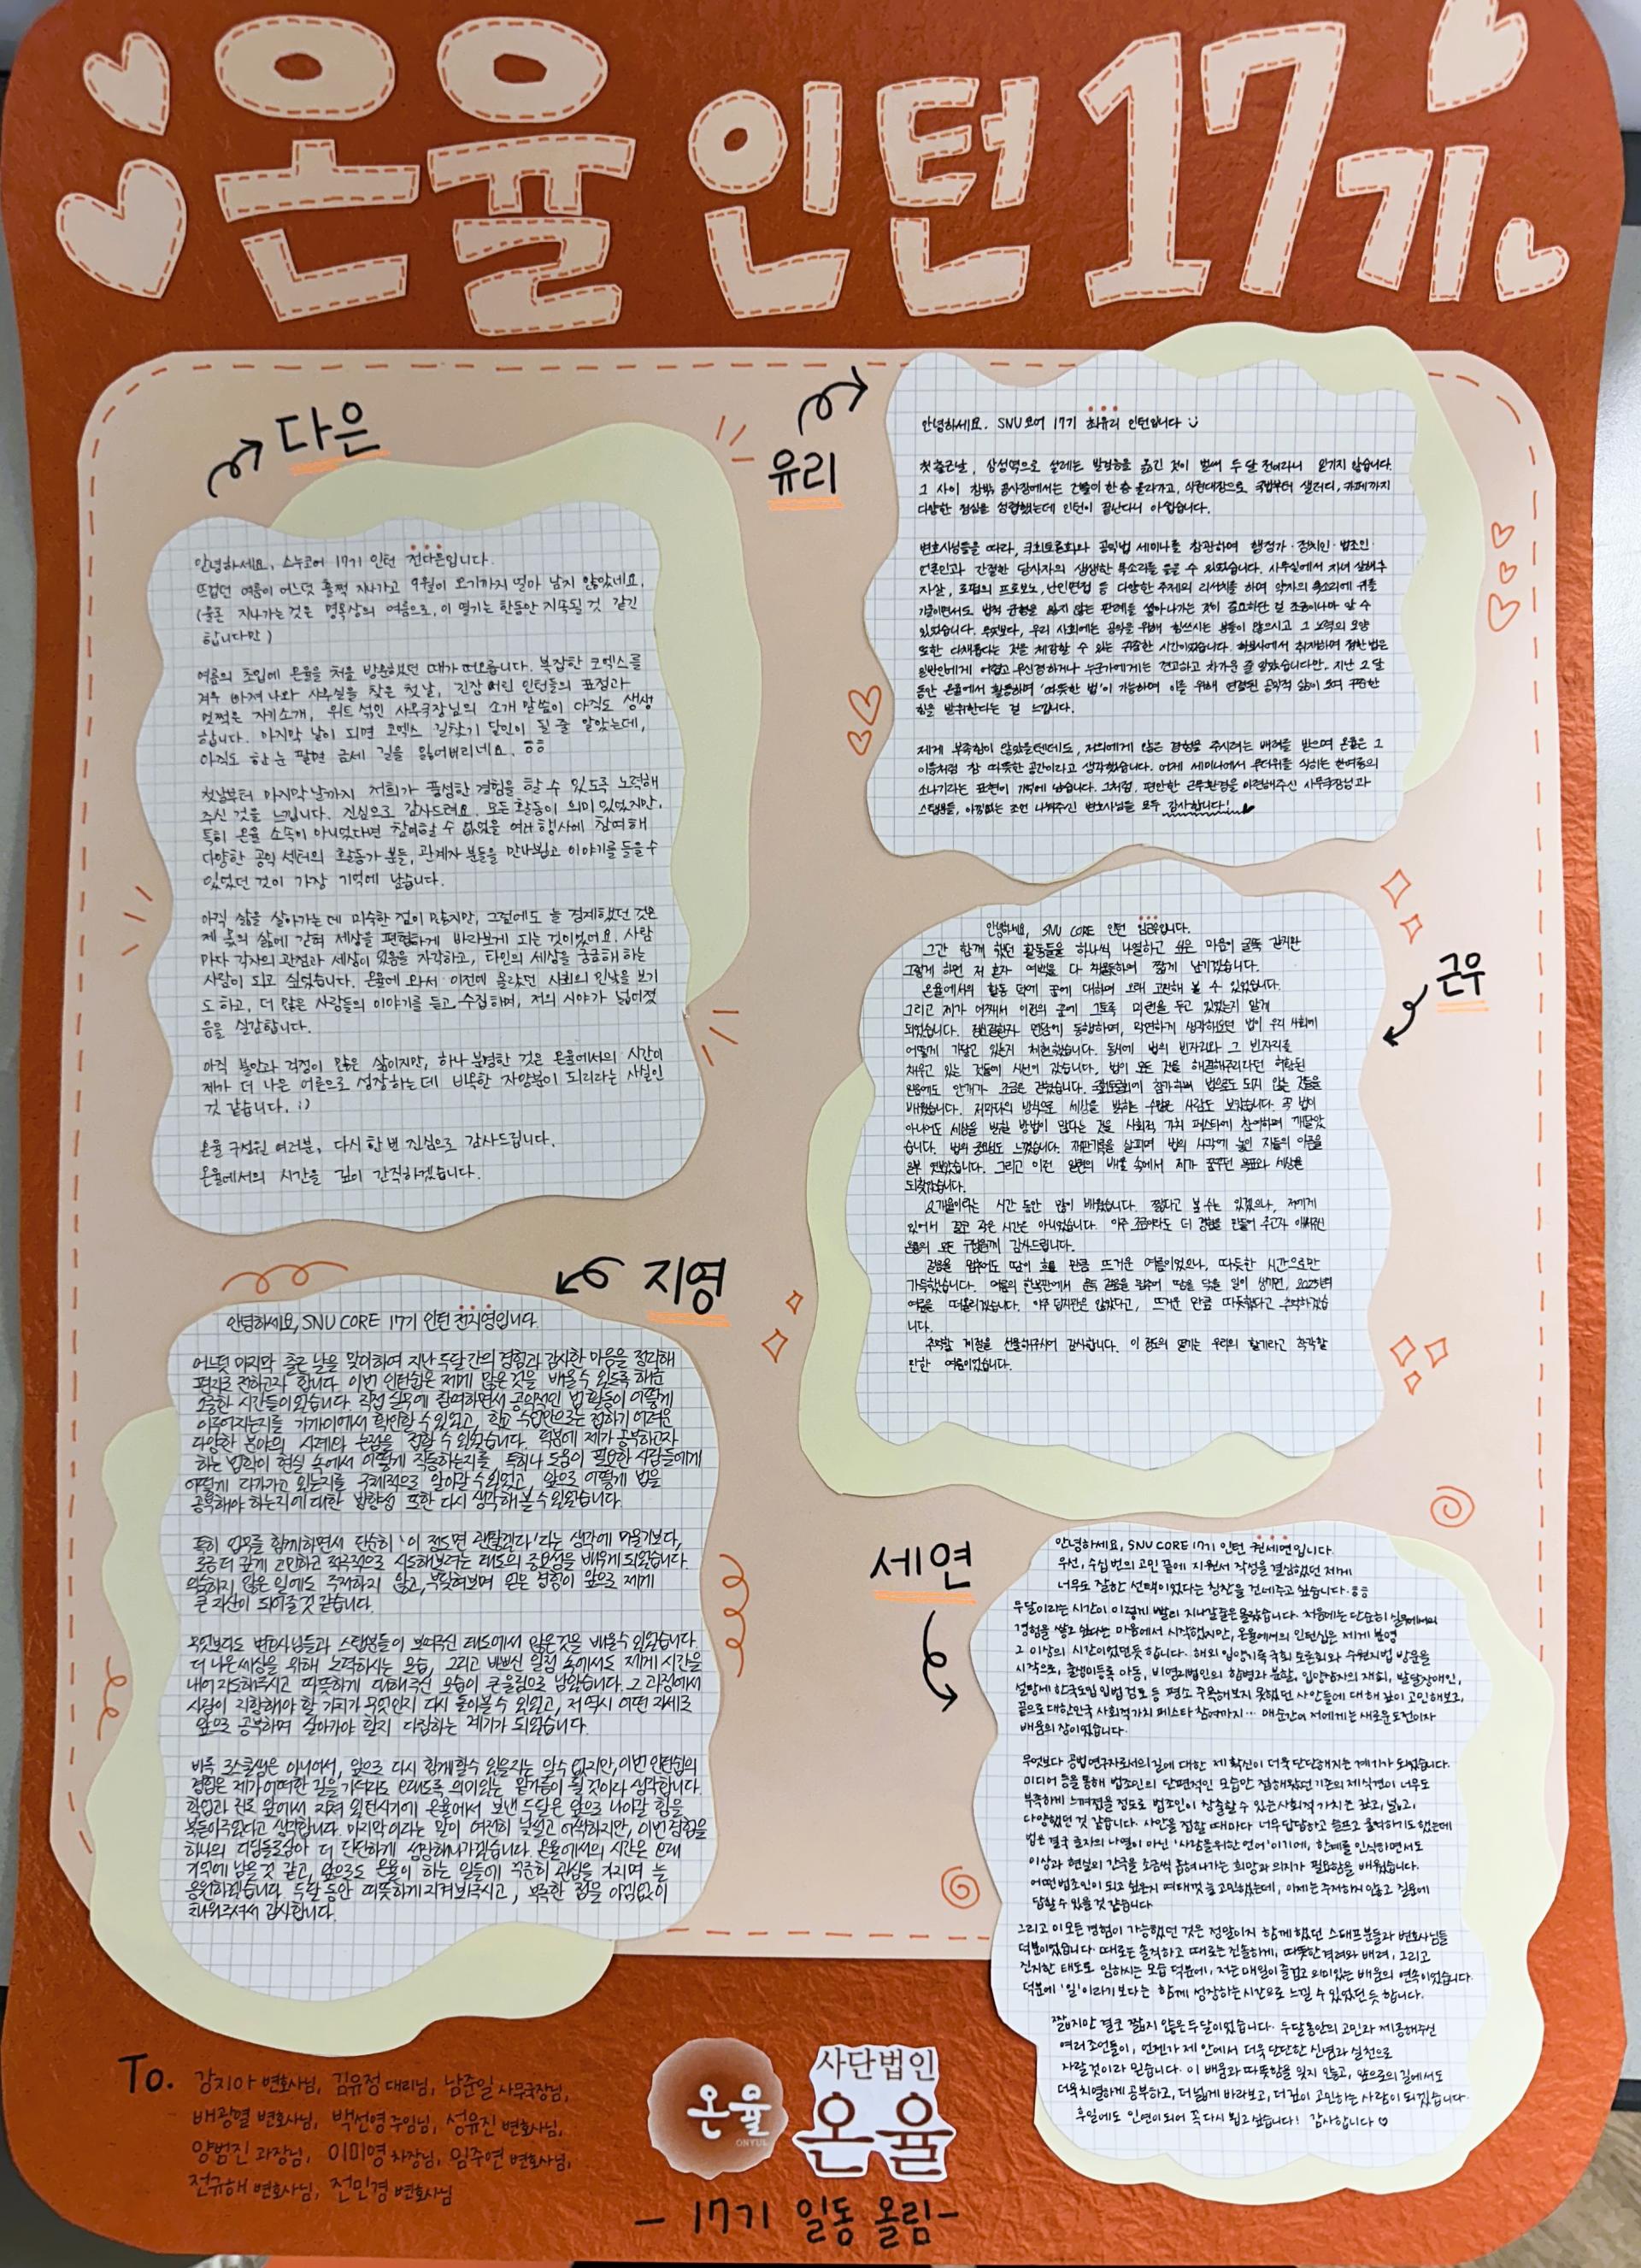 온율 인턴 17기
다은
안녕하세요, 스누코어 17기 인턴 전다은입니다.
뜨겁던 여름이 어느덧 훌쩍 지나가고 9월이 오기까지 얼마 남지 않았네요.
(물론 지나가는 것은 명목상의 여름으로, 이 열기는 한동안 지속될 것 같긴
합니다만)
여름의 초입에 온율을 처음 방문했던 때가 떠오릅니다. 복잡한 코엑스를
겨우 빠져나와 사무실을 찾은 첫날, 긴장 어린 인턴들의 표정과
멋쩍은 자기소개, 위트 섞인 사무국장님의 소개 말씀이 아직도 생생
합니다. 마지막 날이 되면 코엑스 길찾기 달인이 될 줄 알았는데,
아직도 한 눈 팔면 금세 길을 잃어버리네요. ㅎㅎ
첫날부터 마지막 날까지 저희가 풍성한 경험을 할 수 있도록 노력해
주신 것을 느낍니다. 진심으로 감사드려요. 모든 활동이 의미 있었지만,
특히 온율 소속이 아니었다면 참여할 수 없었을 여러 행사에 참여해
다양한 공익 섹터의 활동가 분들, 관계자 분들을 만나뵙고 이야기를 들을 수
있었던 것이 가장 기억에 남습니다.
아직 삶을 살아가는 데 미숙한 점이 많지만, 그럼에도 늘 경계했던 것은
제 몫의 삶에 갇혀 세상을 편협하게 바라보게 되는 것이었어요. 사람
마다 각자의 관점과 세상이 있음을 자각하고, 타인의 세상을 궁금해 하는
사람이 되고 싶었습니다. 온율에 와서 이전에 몰랐던 사회의 민낯을 보기
도 하고, 더 많은 사람들의 이야기를 듣고 수집하며, 저의 시야가 넓어졌
음을 실감합니다.
아직 불안과 걱정이 많은 삶이지만, 하나 분명한 것은 온율에서의 시간이
제가 더 나은 어른으로 성장하는 데 비옥한 자양분이 되리라는 사실인
것 같습니다. :)
온율 구성원 여러분, 다시 한 번 진심으로 감사드립니다.
온율에서의 시간을 깊이 간직하겠습니다.
유리
안녕하세요. SNU코어 17기 최유리 인턴입니다
첫 출근날, 삼성역으로 설레는 발걸음을 옮긴 것이 벌써 두 달 전이라니 믿기지 않습니다.
그 사이 창밖 공사장에서는 건물이 한 층 올라가고, 식권대장으로 국밥부터 샐러디, 카페까지
다양한 점심을 섭렵했는데 인턴이 끝난다니 아쉽습니다.
변호사님들을 따라, 국회토론회와 공익법 세미나를 참관하며 행정가·정치인·법조인·
언론인과 간절한 당사자의 생생한 목소리를 들을 수 있었습니다. 사무실에서 자녀 살해 후
자살, 로펌의 프로보노, 난민면접 등 다양한 주제의 리서치를 하며 약자의 목소리에 귀를
기울이면서도 법적 균형을 잃지 않는 판례를 쌓아나가는 것이 중요하단 걸 조금이나마 알 수
있었습니다. 무엇보다, 우리 사회에는 공익을 위해 힘쓰시는 분들이 많으시고 그 노력의 모양
또한 다채롭다는 것을 체감할 수 있는 귀중한 시간이었습니다. 학보사에서 취재하며 접한 법은
일반인에게 어렵고 무신경하거나 누군가에게는 견고하고 차가운 줄 알았습니다만, 지난 2달
동안 온율에서 활동하며 '따뜻한 법'이 가능하며 이를 위해 연결된 공익적 삶이 모여 꾸준한
힘을 발휘한다는 걸 느낍니다.
제게 부족함이 많았을텐데도, 저희에게 많은 경험을 주시려는 배려를 받으며 온율은 그
이름처럼 참 따뜻한 공간이라고 생각했습니다. 어제 세미나에서 무더위를 식히는 한여름의
소나기라는 표현이 기억에 남습니다. 그처럼, 편안한 근무환경을 마련해주신 사무국장님과
스탭분들, 아낌없는 조언 나눠주신 변호사님들 모두 감사합니다!
근우
안녕하세요, SNU CORE 인턴 임근우입니다.
그간 함께 했던 활동들을 하나씩 나열하고 싶은 마음이 굴뚝 같지만
그렇게 하면 저 혼자 여백을 다 채울듯하여 짧게 남기겠습니다.
온율에서의 활동 덕에 꿈에 대하여 오래 고민해 볼 수 있었습니다.
그리고 제가 어째서 이전의 꿈에 그토록 미련을 두고 있었는지 알게
되었습니다. 정신질환자 면담에 동행하며, 막연하게 생각해왔던 법이 우리 사회에
어떻게 가닿고 있는지 체험했습니다. 동시에 법의 빈자리와 그 빈자리를
채우고 있는 것들에 시선이 갔습니다. 법이 모든 것을 해결해주리라던 허락된
믿음에도 안개가 조금은 걷혔습니다. 국회토론회에 참가하며 법으로도 되지 않는 것들을
배웠습니다. 저마다의 방식으로 세상을 밝히는 수많은 사람도 보았습니다. 꼭 법이
아니어도 세상을 밝힐 방법이 많다는 것을 사회적 가치 페스타에 참여하며 깨달았
습니다. 법의 공백도 느꼈습니다. 재판기록을 살피며 법의 사각에 놓인 자들의 아픔을
일부 엿보았습니다. 그리고 이런 일련의 배움 속에서 제가 꿈꾸던 목표와 세상을
되찾았습니다.
2개월이라는 시간 동안 많이 배웠습니다. 짧다고 볼 수는 있겠으나, 저에게
있어서 결코 작은 시간은 아니었습니다. 아주 조금이라도 더 경험을 만들어 주고자 애써주신
온율의 모든 구성원께 감사드립니다.
걸음을 멈추어도 땀이 흐를 만큼 뜨거운 여름이었으나, 따듯한 시간으로만
가득했습니다. 여름의 한복판에서 문득 걸음을 멈추어 땀을 닦을 일이 생기면, 2025년의
여름을 떠올리겠습니다. 아주 덥지만은 않았다고, 뜨거운 만큼 따듯했다고 추억하겠습
니다.
추억할 계절을 선물해주셔서 감사합니다. 이 정도의 열기는 우리의 활기라고 착각할
만한 여름이었습니다.
지영
안녕하세요, SNU CORE 17기 인턴 전지영입니다.
어느덧 마지막 출근 날을 맞이하여 지난 두달 간의 경험과 감사한 마음을 정리해
편지로 전하고자 합니다. 이번 인턴쉽은 제게 많은 것을 배울 수 있도록 해준
소중한 시간들이었습니다. 직접 실무에 참여하면서 공익적인 법 활동이 어떻게
이루어지는지를 가까이에서 확인할 수 있었고, 학교 수업만으로는 접하기 어려운
다양한 분야의 사례와 논점을 접할 수 있었습니다. 덕분에 제가 공부하고자
하는 법학이 현실 속에서 어떻게 작동하는지를, 특히나 도움이 필요한 사람들에게
어떻게 다가가고 있는지를 구체적으로 알아갈 수 있었고, 앞으로 어떻게 법을
공부해야 하는지에 대한 방향성 또한 다시 생각해볼 수 있었습니다.
특히 업무를 함께하면서 단순히 '이 정도면 괜찮겠다'라는 생각에 머물기보다,
조금 더 깊게 고민하고 적극적으로 시도해보려는 태도의 중요성을 배우게 되었습니다.
익숙하지 않은 일에도 주저하지 않고, 부딪혀보며 얻은 경험이 앞으로 제게
큰 자산이 되어줄 것 같습니다.
무엇보다도 변호사님들과 스탭분들이 보여주신 태도에서 많은 것을 배울 수 있었습니다.
더 나은 세상을 위해 노력하시는 모습, 그리고 바쁘신 일정 속에서도 제게 시간을
내어 지도해주시고 따뜻하게 대해주신 모습이 큰 울림으로 남았습니다. 그 과정에서
사람이 지향해야 할 가치가 무엇인지 다시 돌아볼 수 있었고, 저 역시 어떤 자세로
앞으로 공부하며 살아가야 할지 다짐하는 계기가 되었습니다.
비록 로스쿨생은 아니어서, 앞으로 다시 함께할 수 있을지는 알 수 없지만, 이번 인턴쉽의
경험은 제가 어떠한 길을 가더라도 오래도록 의미있는 밑거름이 될 것이라 생각합니다.
학업과 진로 앞에서 지쳐 있던 시기에 온율에서 보낸 두달은 앞으로 나아갈 힘을
북돋아주었다고 생각합니다. 마지막이라는 말이 여전히 낯설고 어색하지만, 이번 경험을
하나의 디딤돌로 삼아 더 단단하게 성장해나가겠습니다. 온율에서의 시간은 오래
기억에 남을 것 같고, 앞으로도 온율이 하는 일들에 꾸준히 관심을 가지며 늘
응원하겠습니다. 두달 동안 따뜻하게 지켜봐주시고, 부족한 점을 아낌없이
채워주셔서 감사합니다.
세연
안녕하세요, SNU CORE 17기 인턴 권세연입니다.
우선, 수십 번의 고민 끝에 지원서 작성을 결심했던 제게
너무도 잘한 선택이었다는 칭찬을 건네주고 싶습니다. ㅎㅎ
두달이라는 시간이 이렇게 빨리 지나갈줄은 몰랐습니다. 처음에는 단순히 실무에서의
경험을 쌓고 싶다는 마음에서 시작했지만, 온율에서의 인턴십은 제게 분명
그 이상의 시간이었던듯 합니다. 해외 입양기록 국회 토론회와 수원지법 방문을
시작으로, 출생미등록 아동, 비영리법인의 합병과 분할, 입양당사자의 재회, 발달장애인,
설탕세 한국도입 입법 검토 등 평소 주목해보지 못했던 사안들에 대해 깊이 고민해보고,
끝으로 대한민국 사회적가치 페스타 참여까지… 매순간이 저에게는 새로운 도전이자
배움의 장이었습니다.
무엇보다 공법 연구자로서의 길에 대한 제 확신이 더욱 단단해지는 계기가 되었습니다.
미디어 등을 통해 법조인의 단편적인 모습만 접해왔던 기존의 제 식견이 너무도
부족하게 느껴졌을 정도로 법조인이 창출할 수 있는 사회적 가치는 깊고, 넓고,
다양했던 것 같습니다. 사안을 접할 때마다 너무 답답하고 슬프고 울컥하기도 했는데
법은 결국 효자의 나열이 아닌 '사람을 위한 언어'이기에, 한계를 인식하면서도
이상과 현실의 간극을 조금씩 좁혀나가는 희망과 의지가 필요함을 배웠습니다.
어떤 법조인이 되고 싶은지 여태껏 늘 고민했는데, 이제는 주저하지 않고 질문에
답할 수 있을 것 같습니다.
그리고 이 모든 경험이 가능했던 것은 정말이지 함께 했던 스태프분들과 변호사님들
덕분이었습니다. 때로는 솔직하고 때로는 진솔하게, 따뜻한 격려와 배려, 그리고
진지한 태도로 임하시는 모습 덕분에, 저는 매일이 즐겁고 의미있는 배움의 연속이었습니다.
덕분에 '일'이라기보다는 함께 성장하는 시간으로 느낄 수 있었던 듯 합니다.
짧지만 결코 짧지 않은 두달이었습니다. 두달동안의 고민과 제공해주신
여러 조언들이, 언젠가 제 안에서 더욱 단단한 신념과 실천으로
자랄 것이라 믿습니다. 이 배움과 따뜻함을 잊지 않고, 앞으로의 길에서도
더욱 치열하게 공부하고, 더 넓게 바라보고, 더 깊이 고민하는 사람이 되겠습니다.
후일에도 인연이 되어 꼭 다시 뵙고 싶습니다! 감사합니다
To. 강지아 변호사님, 김유정 대리님, 남준일 사무국장님,
배광열 변호사님, 백선영 주임님, 성유진 변호사님,
양범진 과장님, 이미영 차장님, 임주연 변호사님,
전규해 변호사님, 전민경 변호사님
온율
ONYUL
사단법인
온율
- 17기 일동 올림-